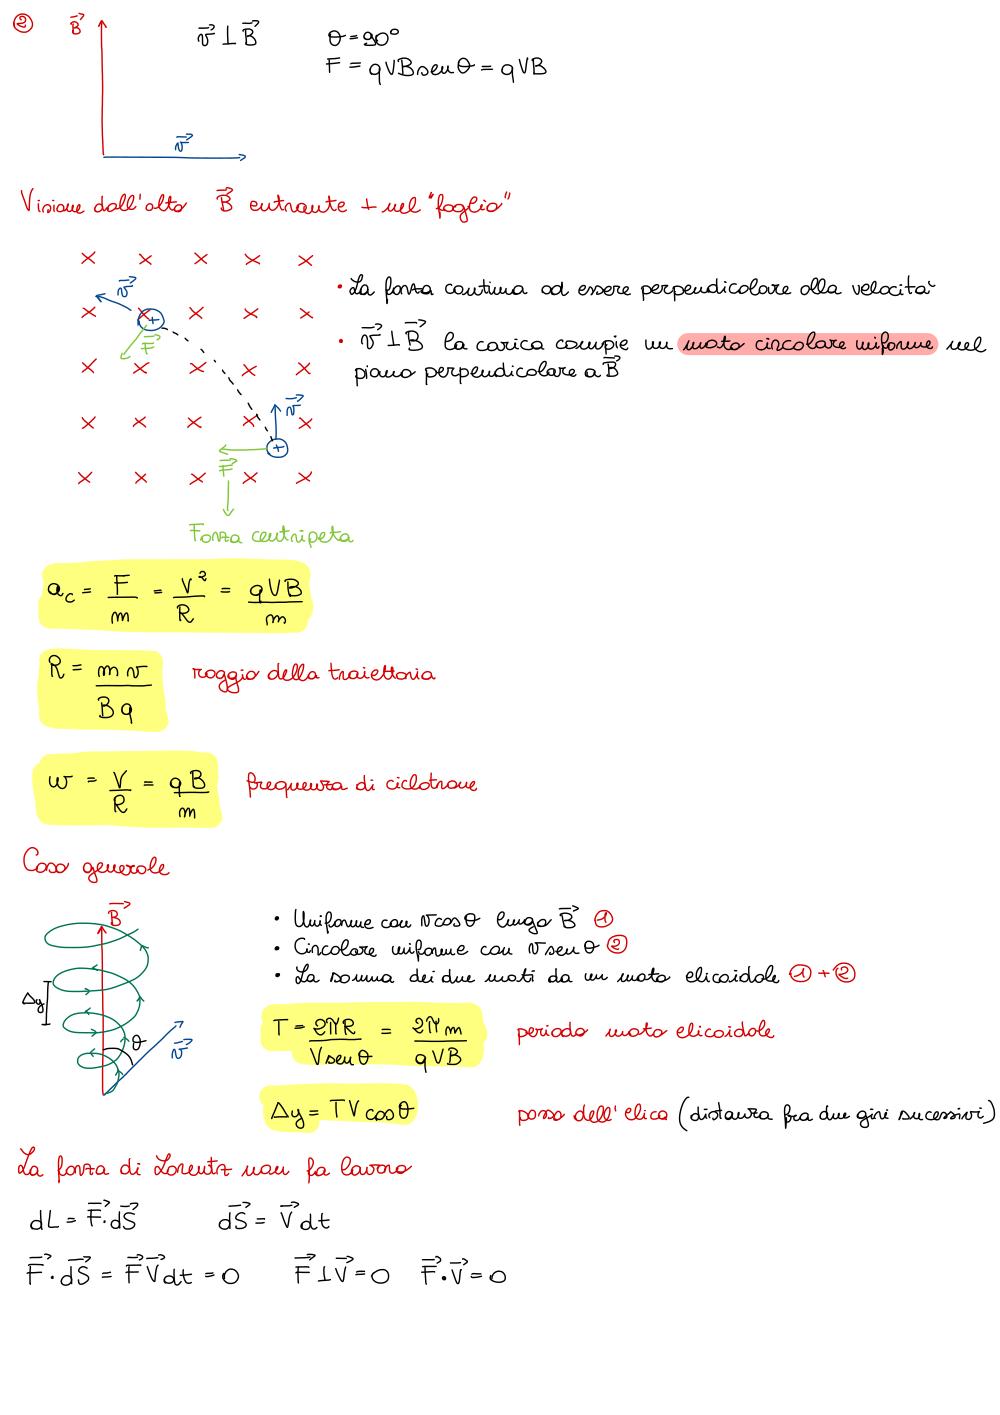 ② B⃗ v⃗ ⊥ B⃗ θ = 90°
F = qVB senθ = qVB
v⃗
Visione dall'alto B⃗ entrante ⊥ nel "foglio"
× × × × ×
v⃗
• La forza continua ad essere perpendicolare alla velocità
× × × × ×
+
F⃗
• v⃗ ⊥ B⃗ la carica compie un moto circolare uniforme nel
piano perpendicolare a B⃗
× × × × ×
v⃗
× × × × ×
+
F⃗
× × × × ×
Forza centripeta
a_c = F/m = V²/R = qVB/m
R = mv/Bq raggio della traiettoria
w = V/R = qB/m frequenza di ciclotrone
Caso generale
B⃗
Δy
θ
v⃗
• Uniforme con vcosθ lungo B⃗ ①
• Circolare uniforme con vsenθ ②
• La somma dei due moti da un moto elicoidale ①+②
T = 2πR/Vsenθ = 2πm/qVB periodo moto elicoidale
Δy = TV cosθ passo dell'elica (distanza fra due giri successivi)
La forza di Lorentz non fa lavoro
dL = F⃗·dS⃗ dS⃗ = V⃗dt
F⃗·dS⃗ = F⃗V⃗dt = 0 F⃗⊥V⃗ = 0 F⃗·V⃗ = 0